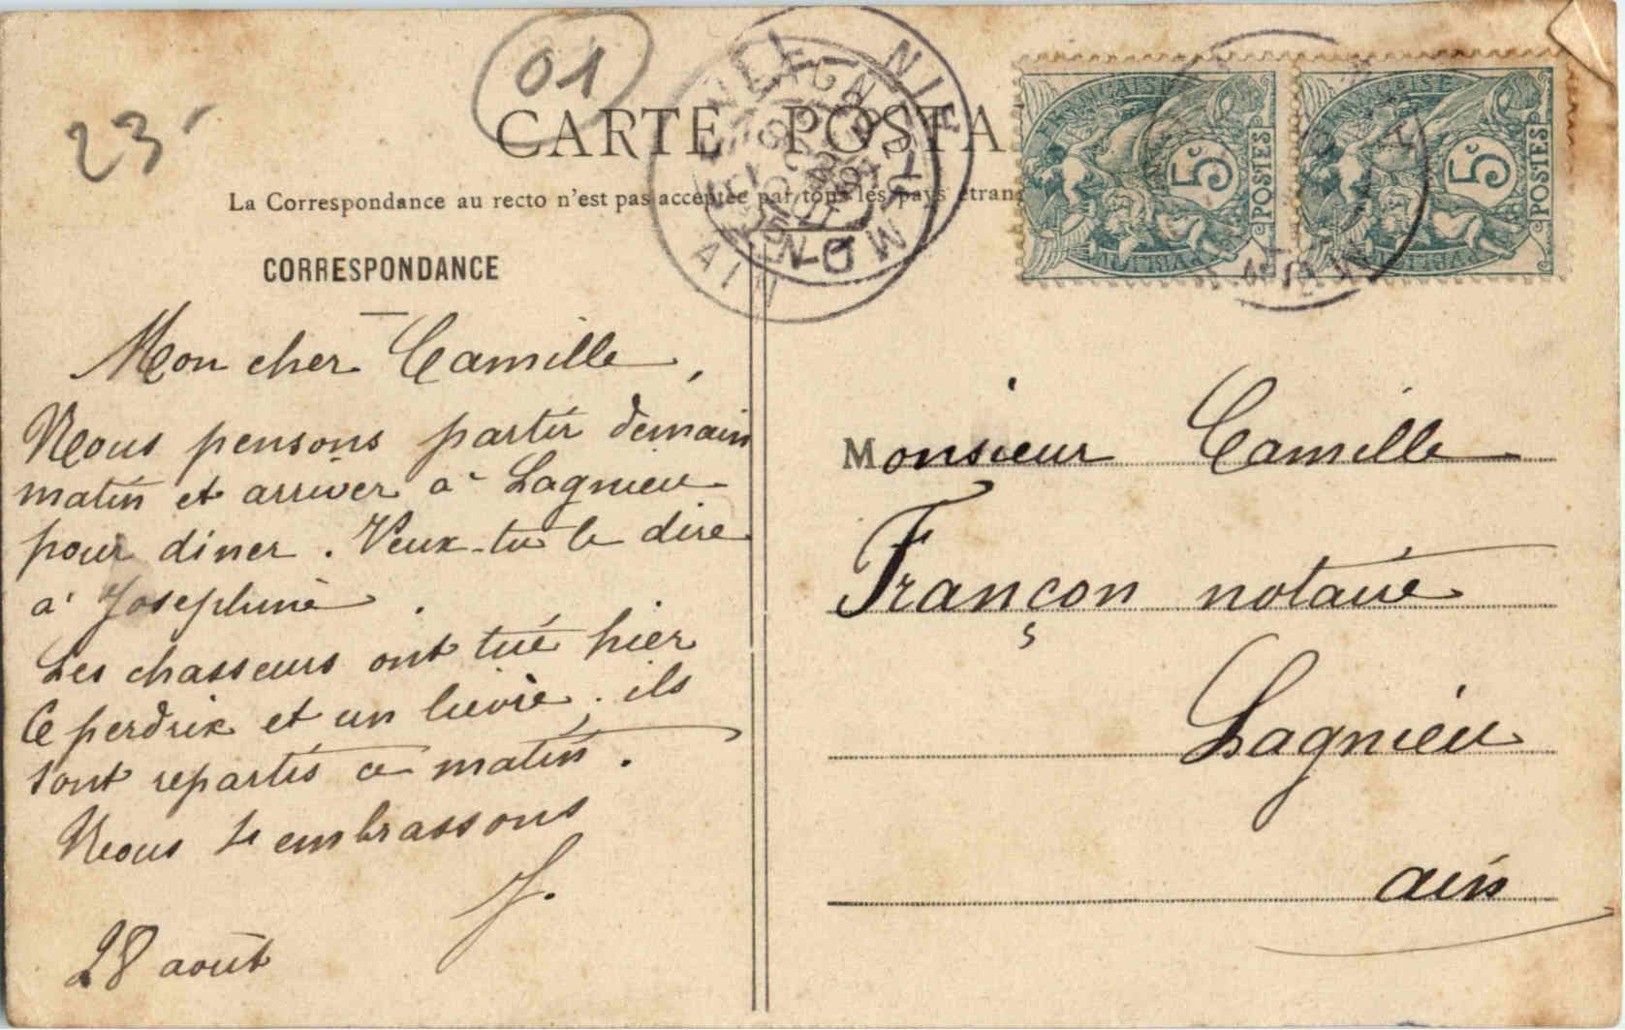 23
01
CARTE POSTA
La Correspondance au recto n'est pas acceptée par tous les pays étran
CORRESPONDANCE
Mon cher Camille,
Nous pensons partir demain
matin et arriver à Lagnieu
pour diner. Veux-tu le dire
à Josephine.
Les chasseurs ont tué hier
6 perdrix et un lièvre. ils
sont repartis ce matin.
Nous t'embrassons
J.
28 août
FRANÇAISE
5c
POSTES
FRANÇAISE
5c
POSTES
AIN
Monsieur Camille
Françon notaire
Lagnieu
ain